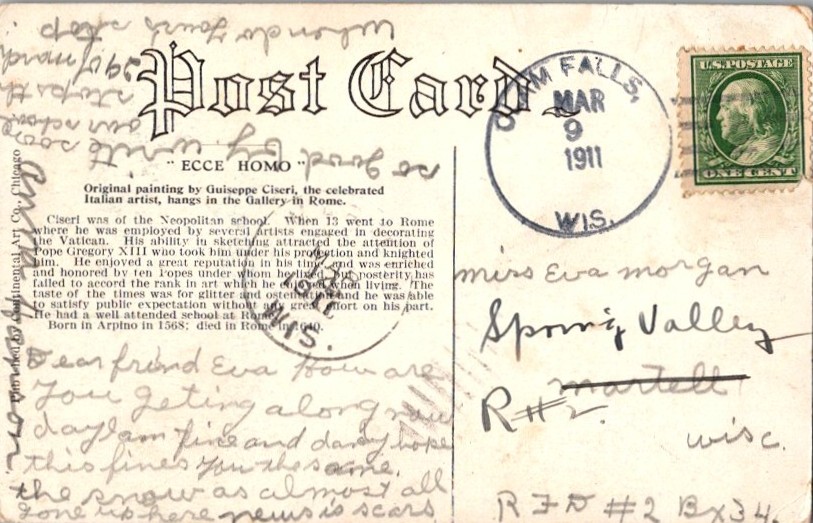 Post Card
"ECCE HOMO"
Original painting by Guiseppe Ciseri, the celebrated
Italian artist, hangs in the Gallery in Rome.
Ciseri was of the Neopolitan school. When 13 went to Rome
where he was employed by several artists engaged in decorating
the Vatican. His ability in sketching attracted the attention of
Pope Gregory XIII who took him under his protection and knighted
him. He enjoyed a great reputation in his time and was enriched
and honored by ten Popes under whom he lived but posterity has
failed to accord the rank in art which he enjoyed when living. The
taste of the times was for glitter and ostentation and he was able
to satisfy public expectation without any great effort on his part.
He had a well attended school at Rome.
Born in Arpino in 1568; died in Rome in 1640.
Dear friend Eva how are
you geting along now
days I am fine and dandy hope
this fines you the same.
the snow as almost all
gone up here news is scars
so good by write soon
our school
stops th
29 of march
when do yours stop
Continental Art Co., Chicago
FALLS,
MAR
9
1911
WIS.
1911
WIS.
U.S. POSTAGE
ONE CENT
miss Eva morgan
Spring Valley
martell
R#2.
wisc.
RFD #2 Bx 34